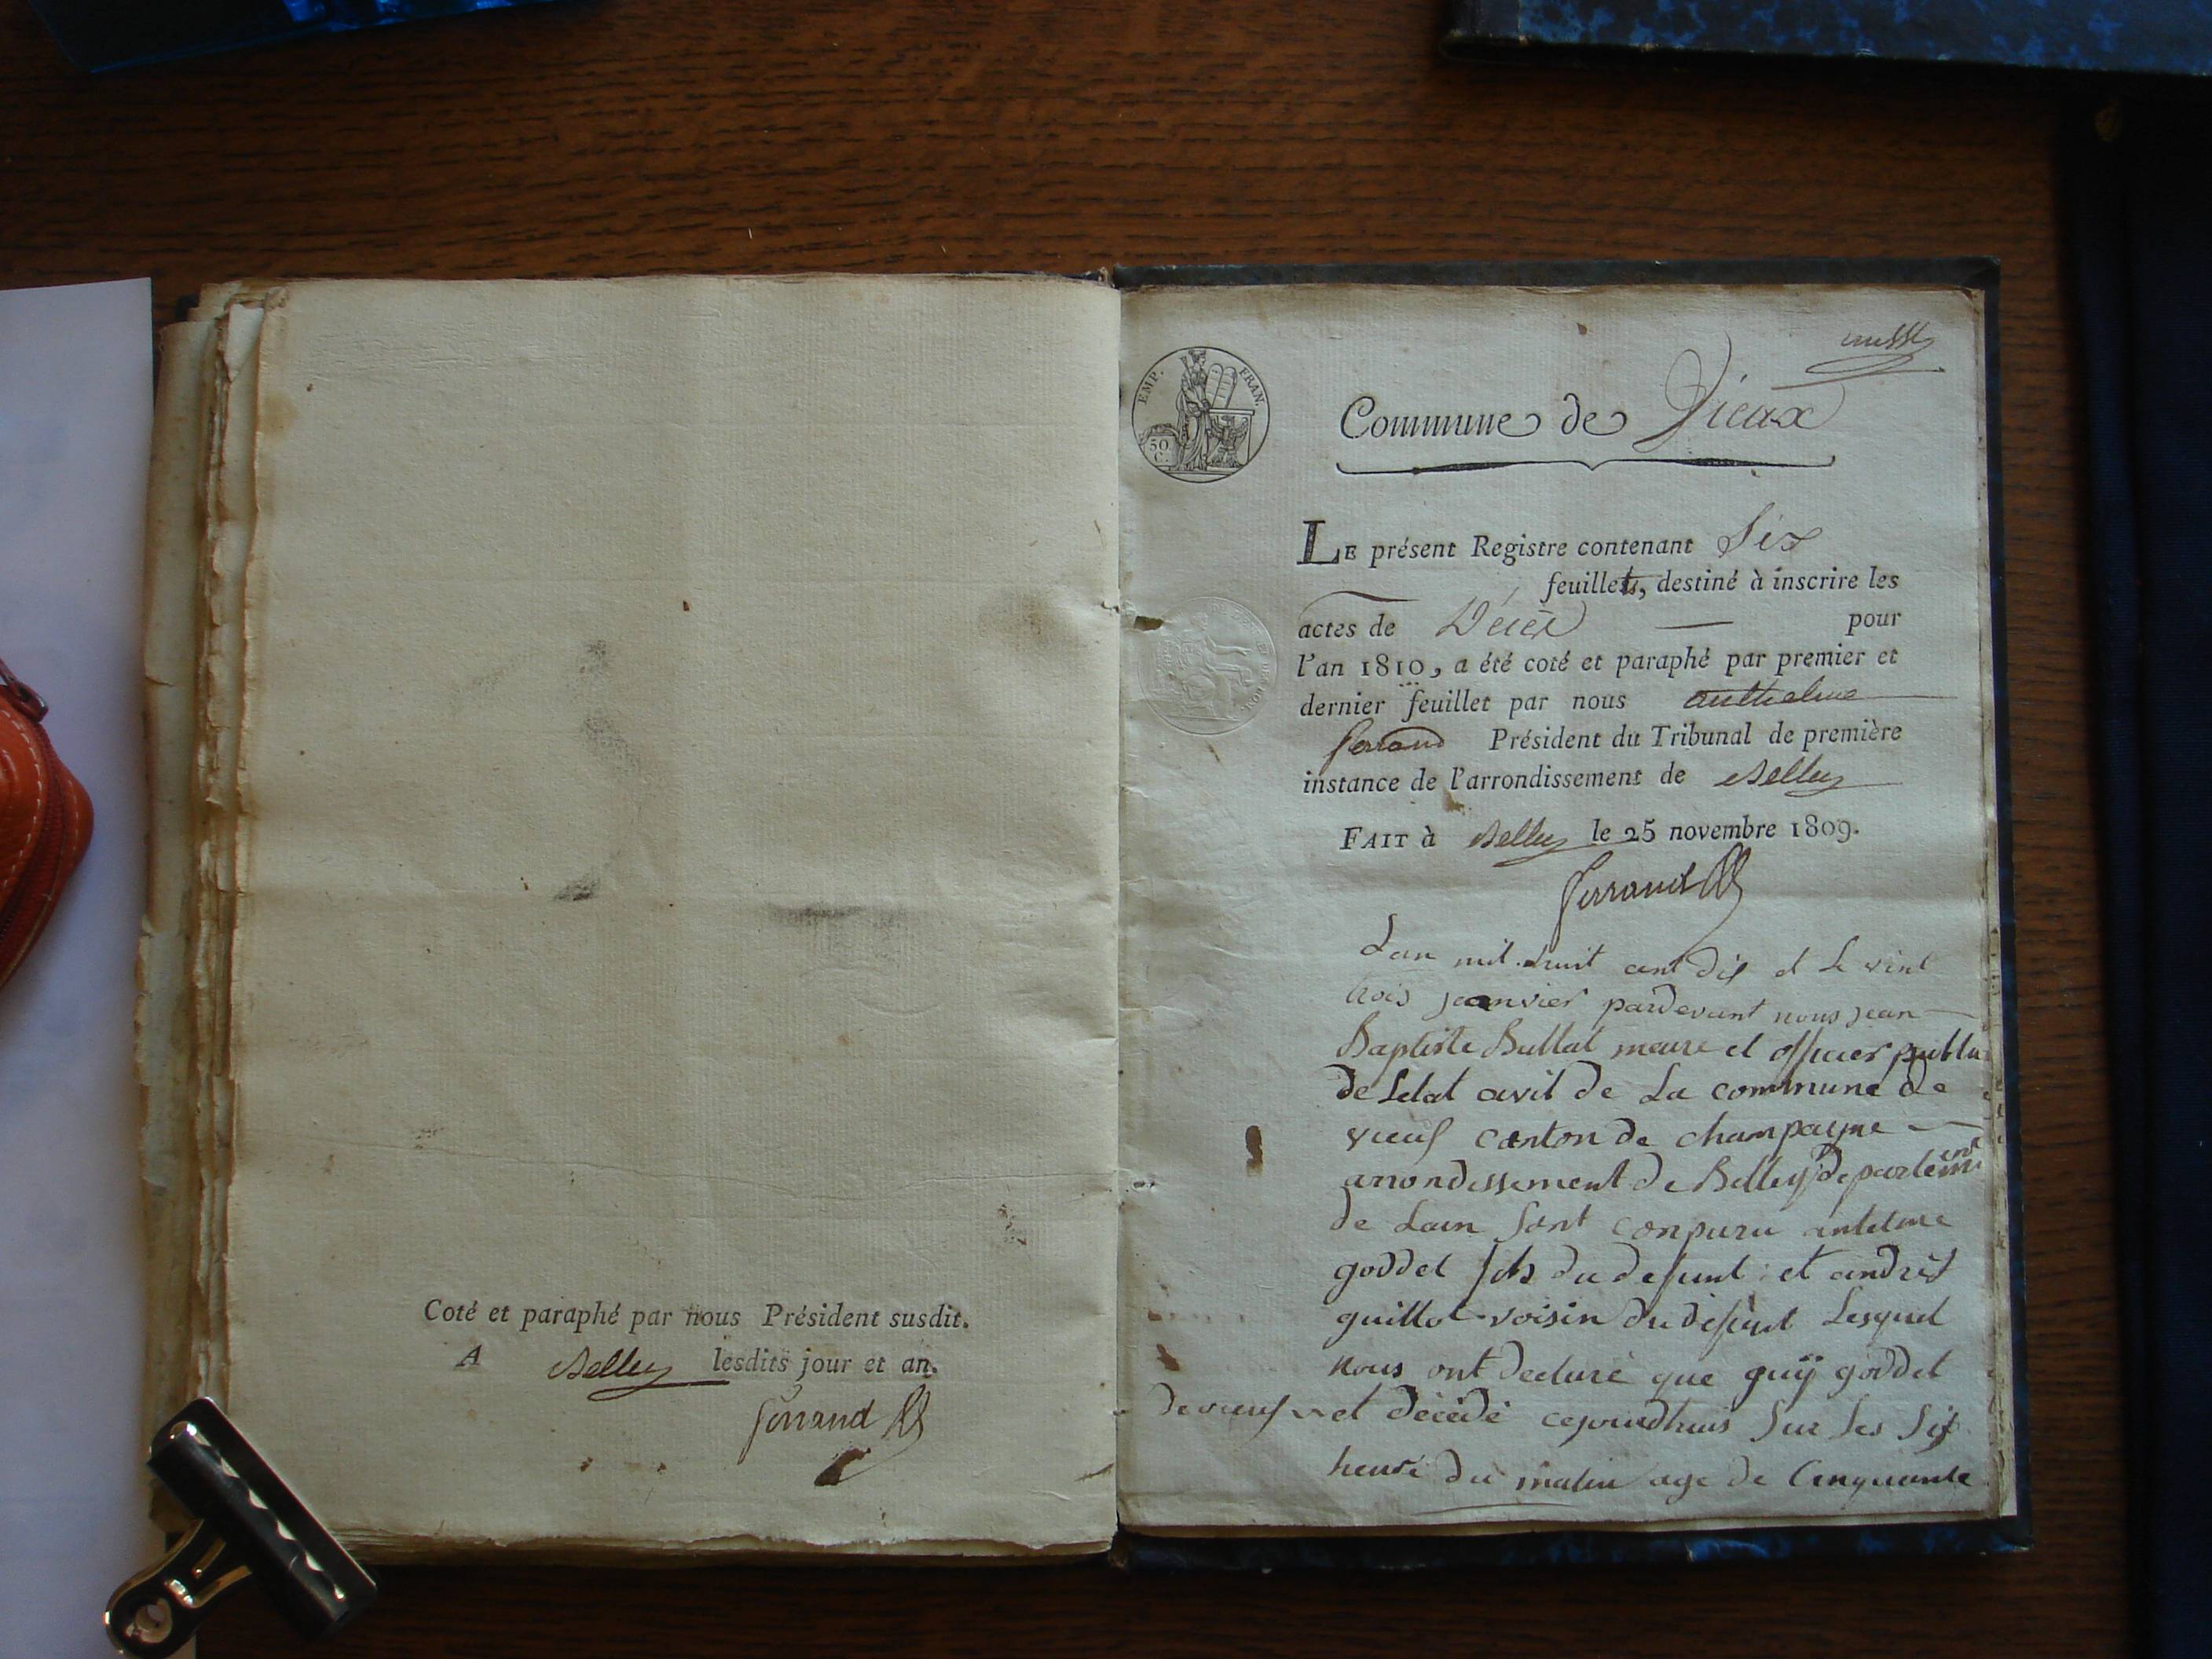 Coté et paraphé par nous Président susdit.
A Belley lesdits jour et an.
ferrand
EMP. FRAN.
50 C.
Commune de Vieux
LE présent Registre contenant Six
feuillets, destiné à inscrire les
actes de Décès pour
l'an 1810, a été coté et paraphé par premier et
dernier feuillet par nous anthelme
ferrand Président du Tribunal de première
instance de l'arrondissement de Belley
FAIT à Belley le 25 novembre 1809.
ferrand
Lan mil huit cent dix et le vint
trois janvier pardevant nous jean
Baptiste Bullat maire et officier public
de Letat civil de La commune de
vieux canton de champagne
arrondissement de Belley departement
de Lain sont conparu antelme
goddet fils du defunt et andré
guillot voisin du defunt Lesquel
nous ont declaré que guÿ goddet
de vieux et décédé cejourdhuis sur les six
heure du matin age de Cinquante